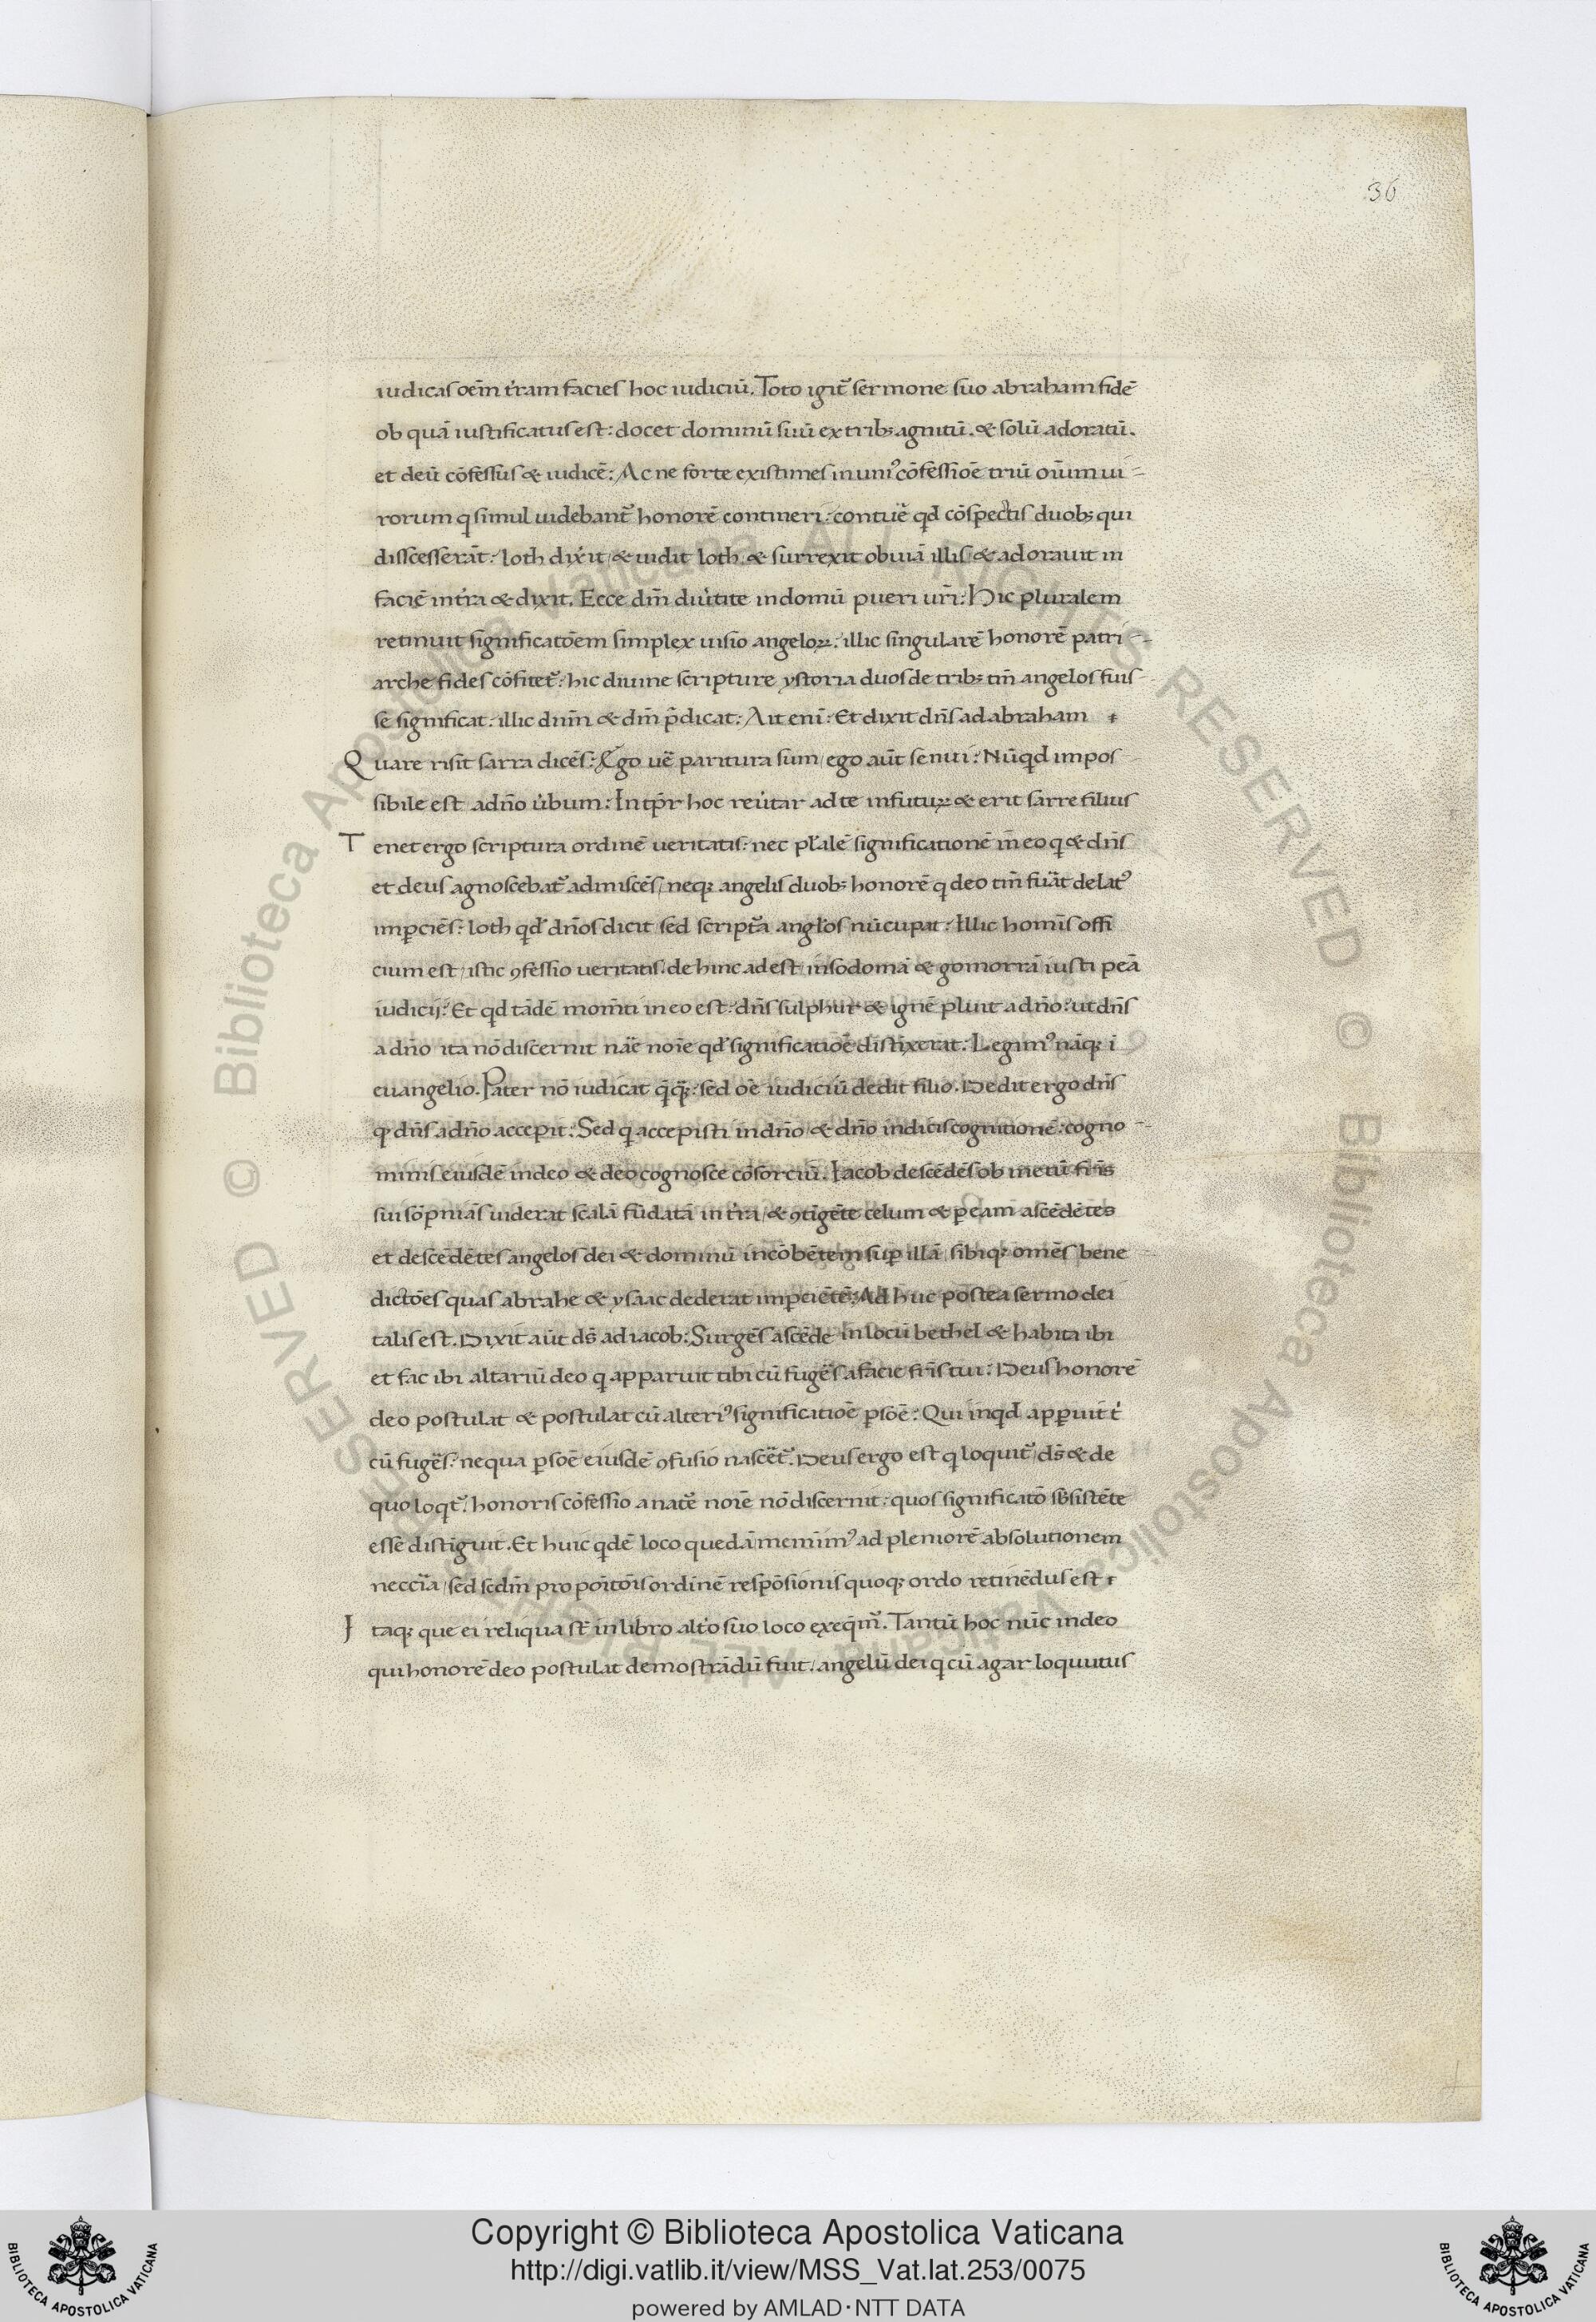 36
iudicas oēm t̄ram facies hoc iudiciū. Toto igit᷑ sermone suo abraham fidē
ob quā iustificatus est: docet dominū suū ex trib; agnitū. & solū adoratū.
et deū cōfessus & iudicē: Ac ne forte existimes in uniꝰ cōfessiōe triū oīum ui-
rorum q simul uidebant᷑ honorē contineri: contuē qd cōspectis duob; qui
disscesserāt: loth dix̄it, & uidit loth, & surrexit obuiā illis & adorauit in
faciē in t̄ra & dixit. Ecce dm̄ diu̇tite in domū pueri ur̄i: Hic pluralem
retinuit significatōem simplex uisio angeloꝝ. illic singularē honorē patri-
arche fides cōfitet᷑: hic diuine scripture ystoria duos de trib; tm̄ angelos fuis-
se significat. illic dnm̄ & dm̄ p̄dicat: Ait eni: Et dixit dn̄s ad abraham
Quare risit sarra dicēs: Ego uē paritura sum, ego aūt senui: Nūqd impos
sibile est a dn̄o u̇bum: In tp̄r hoc reu̇tar ad te in futuꝝ & erit sarre filius
Tenet ergo scriptura ordinē veritatis: nec pl̄alē significationē in eo q & dn̄s
et deus agnoscebat᷑ admiscēs, neq; angelis duob; honorē q deo tm̄ fuāt delatꝰ
imꝑciēs: loth qd᷑ dn̄os dicit, sed script᷑a angl̄os nūcupat: Illic homīs offi
cium est, istic ꝯfessio veritatis. de hinc adest, in sodomā & gomorrā iusti peā
iudicij: Et qd tādē mom̄ti in eo est: dn̄s sulphur & ignē pluit a dn̄o: ut dn̄s
a dn̄o ita nō discernit nāe noīe qd᷑ significatiōē distīxerat: Legimꝰ nāq; i
euangelio. Pater nō iudicat q̄q̄: sed oē iudiciū dedit filio. Dedit ergo dn̄s
q dn̄s a dn̄o accepit: Sed q accepisti in dn̄o & dn̄o indicis cognitionē: cogno-
minis eiusdē in deo & deo cognosce cōsorciū. Iacob descēdēs ob metū fr̄is
sui sōpnias uiderat scalā fūdatā in t̄ra, & ꝯtīgēte celum & ꝑ eam ascēdētes
et descēdētes angelos dei & dominū incōbētem suꝑ illā, sibiq; omēs bene
dictōes quas abrahe & ysaac dederat imꝑciētē: Ad huc postea sermo dei
talis est. Dixit aūt ds̄ ad iacob: Surgēs ascēde in locū bethel & habita ibi
et fac ibi altariū deo q apparuit tibi cū fugēs a facie fr̄is tui: Deus honorē
deo postulat & postulat cū alteriꝰ significatiōe ꝑsōe: Qui inqd apꝑuit t̄
cū fugēs: ne qua ꝑsōe eiusdē ꝯfusio nascēt᷑. Deus ergo est q loquit᷑, ds̄ & de
quo loqt᷑, honoris cōfessio a natē noīe nō discernit: quos significatō sb̄sistēte
esse distīguit. Et huic qdē loco quedā memimꝰ ad pleniorē absolutionem
necc̄ia, sed secdm̄ propoītōis ordinē respōsionis quoq; ordo retinēdus est
Itaq; que ei reliqua st̄ in libro alt̄o suo loco exeqm᷑. Tantū hoc nūc in deo
qui honorē deo postulat demostrādū fuit, angelū dei q cū agar loquutus
Copyright © Biblioteca Apostolica Vaticana
http://digi.vatlib.it/view/MSS_Vat.lat.253/0075
powered by AMLAD·NTT DATA
BIBLIOTECA APOSTOLICA VATICANA
BIBLIOTECA APOSTOLICA VATICANA